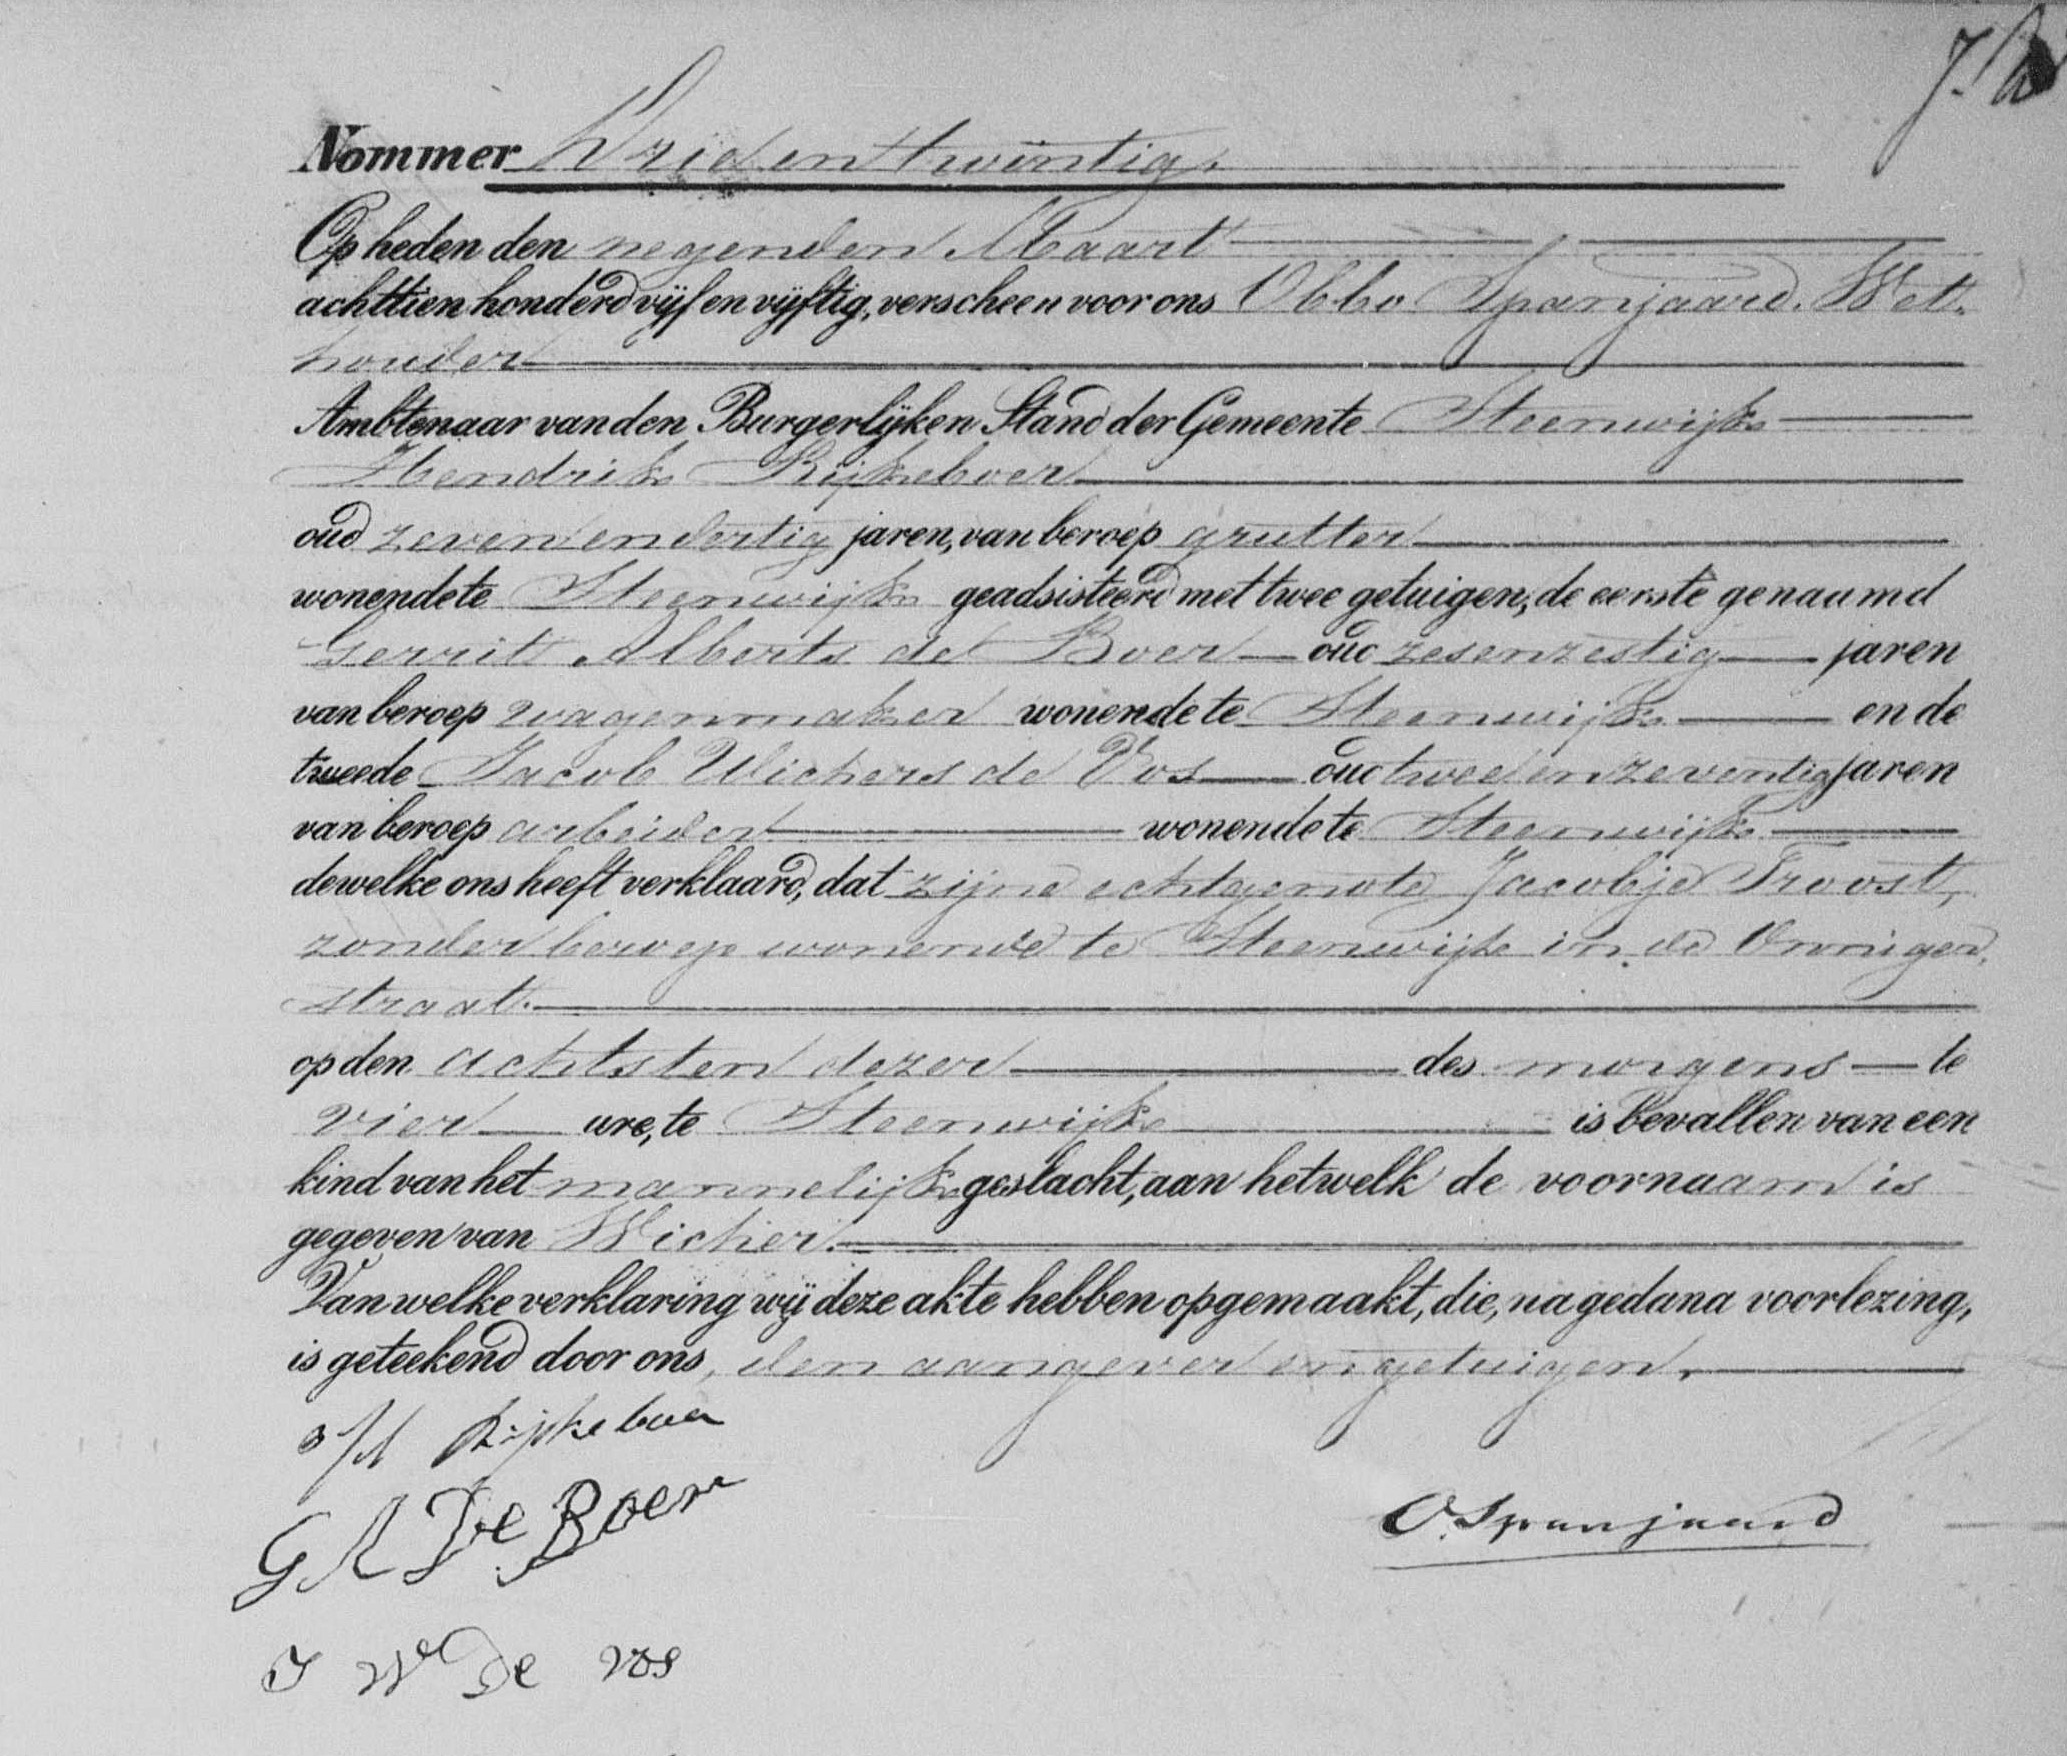 Nommer Drieentwintig.
Op heden den negenden Maart
achttien honderd vijf en vijftig, verscheen voor ons Obbo Spanjaard. Wet-
houder
Ambtenaar van den Burgerlijken Stand der Gemeente Steenwijk
Hendrik Rijkeboer
oud zeven en dertig jaren, van beroep grutter
wonende te Steenwijk geadsisteerd met twee getuigen, de eerste genaamd
Gerrit Alberts de Boer oud zesenzestig jaren
van beroep wagenmaker wonende te Steenwijk en de
tweede Jacob Wichers de Vos oud twee en zeventig jaren
van beroep arbeider wonende te Steenwijk
dewelke ons heeft verklaard, dat zijne echtgenote Jacobje Troost,
zonder beroep wonende te Steenwijk in de Onninger
straat.
op den achtsten dezer des morgens te
vier ure, te Steenwijk is bevallen van een
kind van het mannelijk geslacht, aan hetwelk de voornaam is
gegeven van Wicher.
Van welke verklaring wij deze akte hebben opgemaakt, die, na gedana voorlezing,
is geteekend door ons, den aangever en getuigen.
H Rijkeboer
G A De Boer
O. Spanjaard
J W De vos